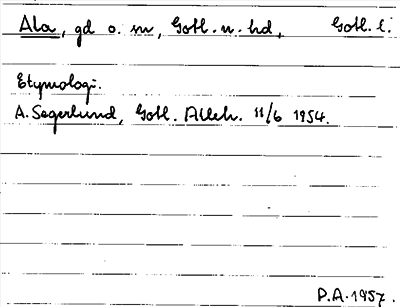 Ala, gd o. m, Gotl. n. hd, Gotl. l.
Etymologi.
A. Segerlund, Gotl. Alleh. 11/6 1954.
P.A. 1957.